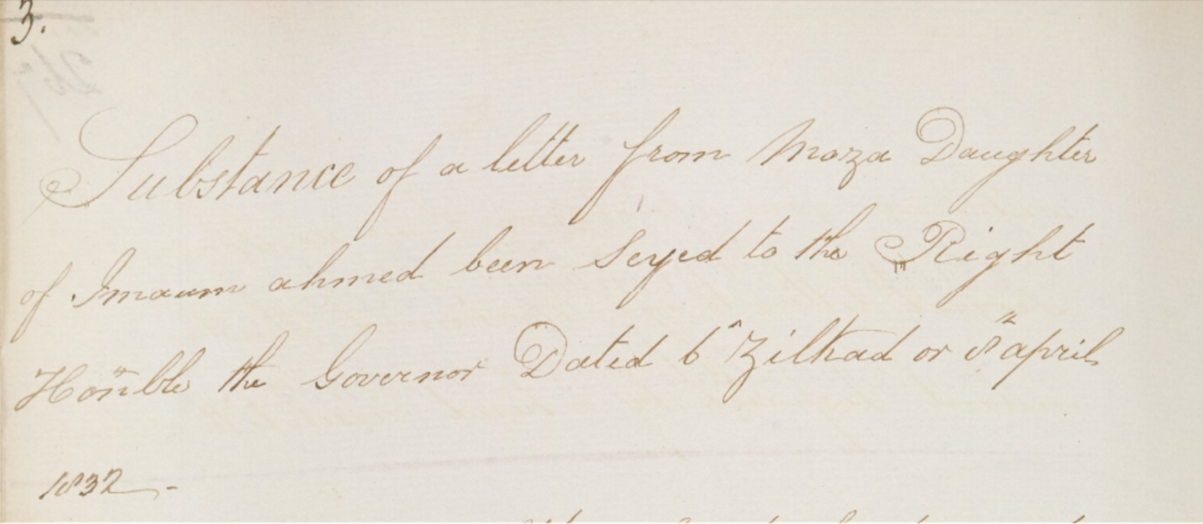 3.
Substance of a letter from Moza Daughter
of Imaum ahmed been Seyed to the Right
Honble the Governor Dated 6" Zilkad or 8" april
1832 -